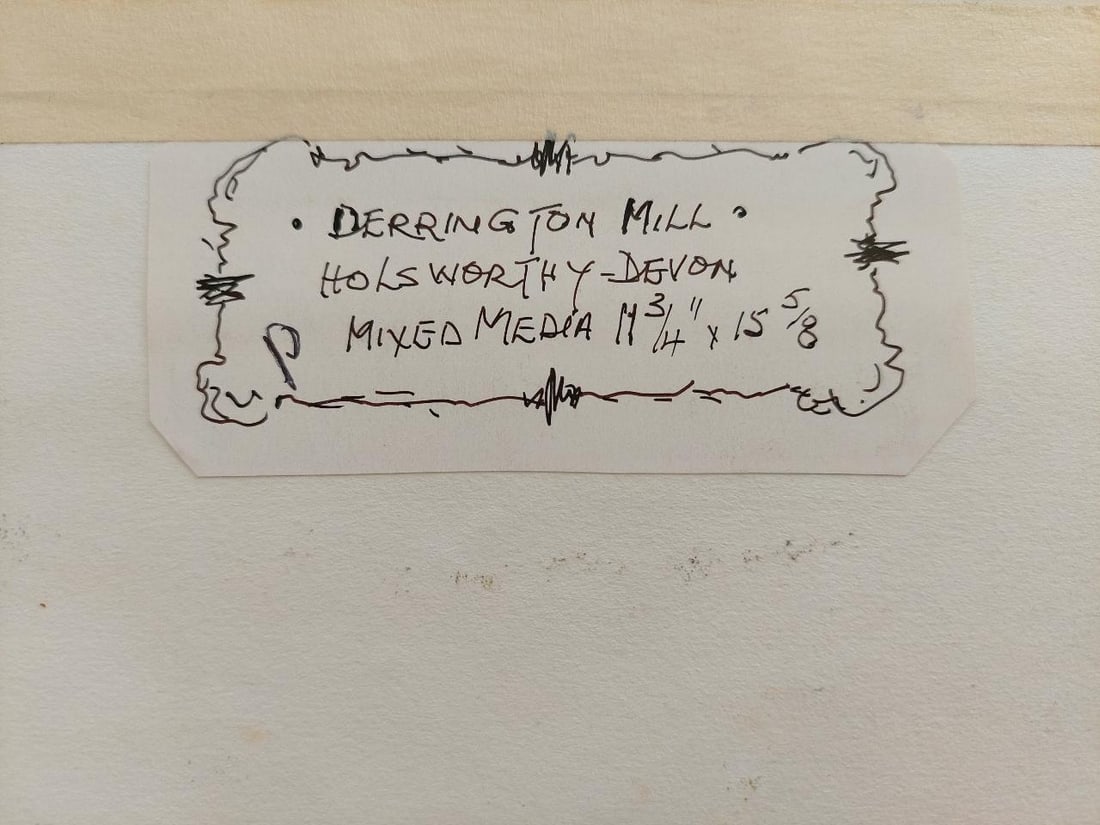 • DERRINGTON MILL •
HOLSWORTHY-DEVON
MIXED MEDIA 11 3/4" x 15 5/8
P